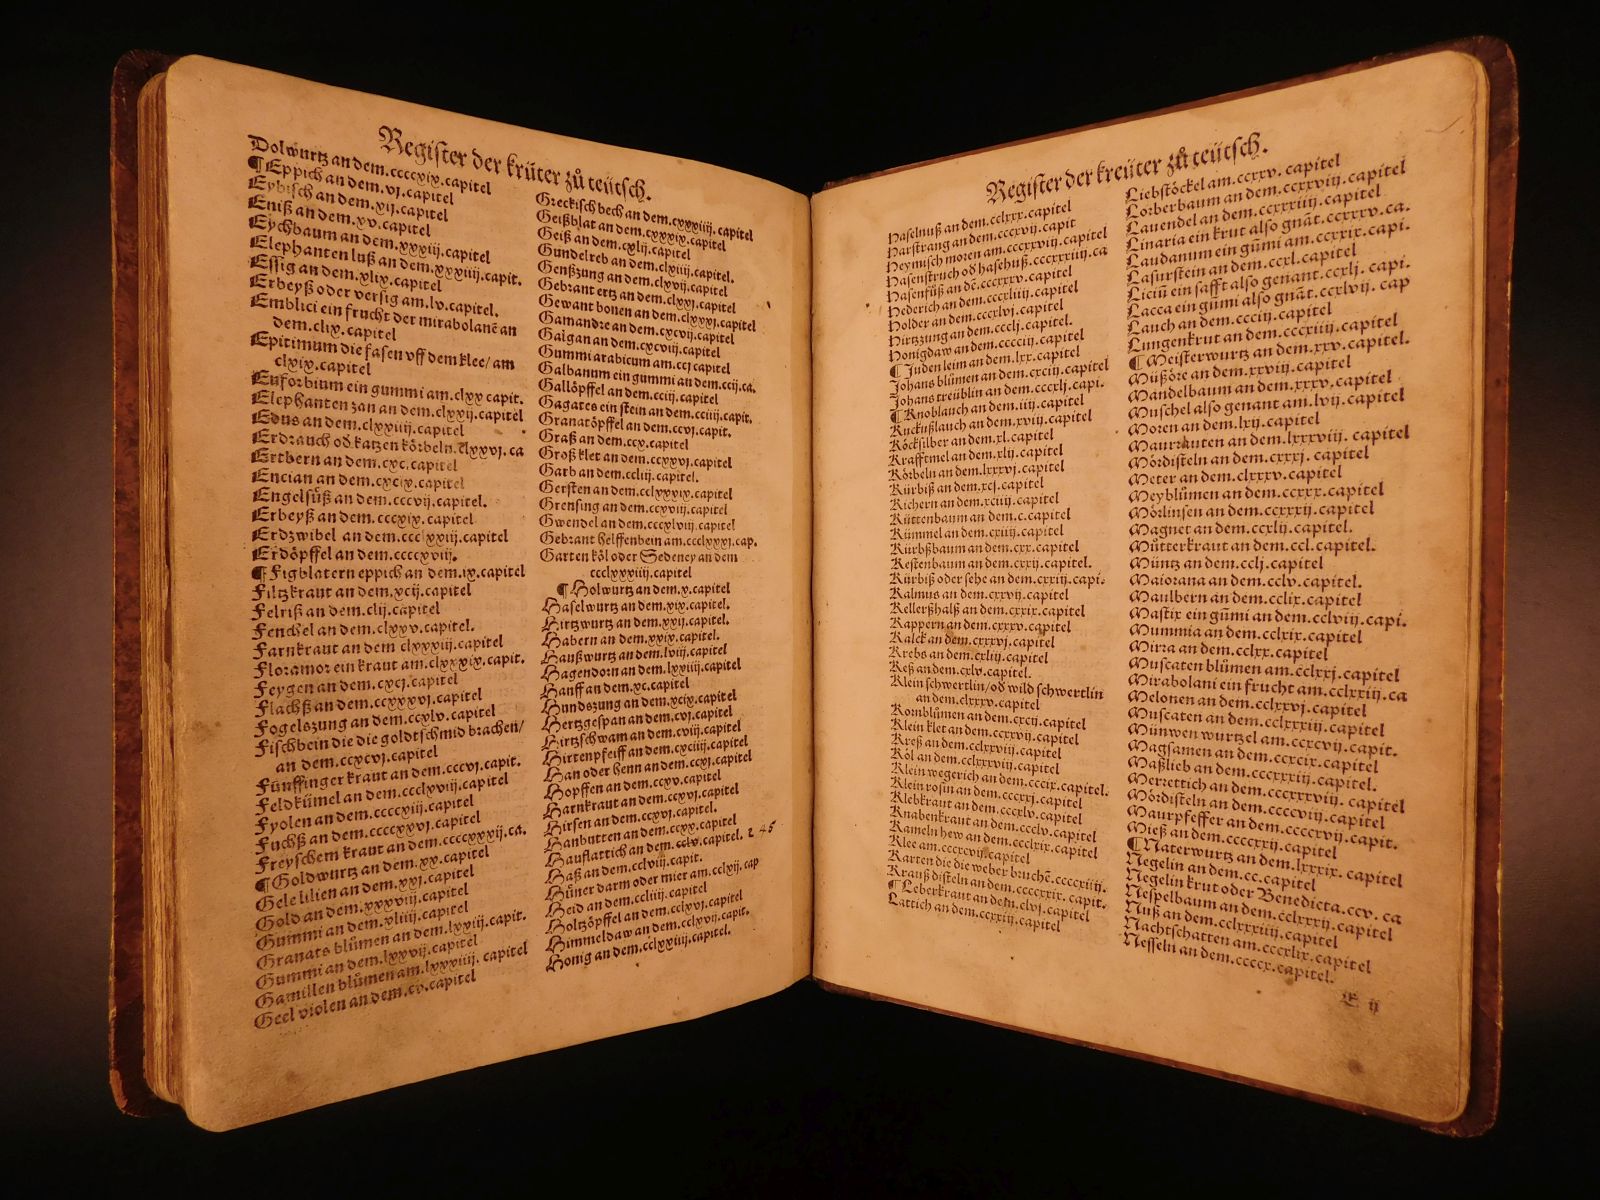 Register der krüter zů teütsch.
Dolwurtz an dem.ccccxix.capitel
¶Eppich an dem.vj.capitel
Eybisch an dem.xij.capitel
Eniß an dem.xv.capitel
Eychbaum an dem.xxxiij.capitel
Elephanten luß an dem.xxxiiij.capit.
Essig an dem.xlix.capitel
Erbeyß oder versig am.lv.capitel.
Emblici ein frucht der mirabolanē an
dem.clix.capitel
Epitimum die fasen vff dem klee/am
clxix.capitel
Euforbium ein gummi am.clxx capit.
Elephanten zan an dem.clxxij.capitel
an dem.clxxiiij.capitel
Erdrauch od katzen körbeln.clxxvj.ca
Ertbern an dem.cxc.capitel
Encian an dem.cxcix.capitel
Engelsüß an dem.cccvij.capitel.
Erbeyß an dem.cccxix.capitel
Erdzwibel an dem.ccclxxiij.capitel
Erdöpffel an dem.ccccxviij.
¶Figblatern eppich an dem.ix.capitel
Filtzkraut an dem.xcij.capitel
Felriß an dem.clij.capitel
Fenchel an dem.clxxv.capitel.
Farnkraut an dem clxxxiij.capitel
Floramor ein kraut am.clxxxix.capit.
Feygen an dem.cxcj.capitel
Flachß an dem.ccxxxvj.capitel
Fogelszung an dem.ccxlv.capitel
Fischbein die die goldtschmid brachen/
an dem.ccxcvj.capitel
Fünffinger kraut an dem.cccvj.capit.
Feldkümel an dem.ccclxviij.capitel
Fyolen an dem.ccccxiij.capitel
Fuchß an dem.ccccxxvj.capitel
Freyschem kraut an dem.ccccxxxij.ca.
¶Goldwurtz an dem.xx.capitel
Gele lilien an dem.xxj.capitel
Gold an dem.xxxviij.capitel
Gummi an dem.xliiij.capitel
Granats blůmen an dem.lxxiij.capit.
Gummi an dem.lxxvij.capitel
Gamillen blůmen am.lxxxiiij.capitel
Geel violen an dem.cv.capitel
Greckisch bech an dem.cxxxiiij.capitel
Geißblat an dem.cxxxix.capitel
Geiß an dem.cxlij.capitel
Gundelreb an dem.clxiiij.capitel.
Genßzung an dem.clxvij.capitel
Gebrant ertz an dem.clxxj.capitel
Gewant bonen an dem.clxxxj.capitel
Gamandre an dem.cxcvij.capitel
Galgan an dem.cxcviij.capitel
Gummi arabicum am.ccj capitel
Galbanum ein gummi an dem.ccij.ca.
Gallöpffel an dem.cciij.capitel
Gagates ein stein an dem.cciiij.capit.
Granatöpffel an dem.ccvj.capit.
Graß an dem.ccx.capitel
Groß klet an dem.ccxxvj.capitel
Garb an dem.ccliij.capitel
Gersten an dem.cclxxxix.capitel
Grensing an dem.ccxviij.capitel
Gwendel an dem.cccxlviij.capitel
Gebrant helffenbein am.ccclxxxj.cap.
Garten köl oder Sedeney an dem
ccclxxxiiij.capitel
¶Holwurtz an dem.x.capitel
Haselwurtz an dem.xix.capitel.
Hirtzwurtz an dem.xxij.capitel.
Habern an dem.xxix.capitel.
Haußwurtz an dem.lviij.capitel
Hagendorn an dem.lxxiiij.capitel
Hanff an dem.xc.capitel
Hundszung an dem.xcix.capitel
Hertzgespan an dem.cvj.capitel
Hirtzschwam an dem.cviij.capitel
Hirtenpfeiff an dem.cxciij.capitel
Han oder henn an dem.ccxj.capitel
Hopffen an dem.ccxv.capitel
Harnkraut an dem.ccxvj.capitel
Hirsen an dem.ccxvj.capitel.
Hanbutten an dem.ccxx.capitel
Hauflattich an dem.cclv.capitel. 245
Haß an dem.cclviij.capit.
Hüner darm oder mier am.cclxij.cap
Heid an dem.ccliiij.capitel
Holtzöpffel an dem.cclxvj.capitel
Himmeldaw an dem.cclxvij.capit.
Honig an dem.cclxxiiij.capitel.
Register der kreüter zů teütsch.
Haselnuß an dem.cclxxx.capitel
Harstrang an dem.cccxvij.capit
Heymisch moren am.cccxxvij.capitel
Hasenstruch od hasehuß.cccxxxiiij.ca
Hasenfüß an dē.cccxxxv.capitel
Hederich an dem.cccxliiij.capitel
Holder an dem.cccxlvj.capitel
Hirtzzung an dem.ccclj.capitel.
Honigdaw an dem.cccciij.capitel
¶Juden leim an dem.lxx.capitel
Johans blůmen an dem.cxciij.capitel
Johans treüblin an dem.cccxlj.capi.
¶Knoblauch an dem.iiij.capitel
Kuckußlauch an dem.xviij.capitel
Köcksilber an dem.xl.capitel
Krafftmel an dem.xlij.capitel
Körbeln an dem.lxxxvj.capitel
Kürbiß an dem.xcj.capitel
Kichern an dem.xciiij.capitel
Küttenbaum an dem.c.capitel
Kümmel an dem.cxiiij.capitel
Kürbßbaum an dem.cxx.capitel
Kestenbaum an dem.cxxij.capitel
Kürbiß oder sehe an dem.cxxiij.capi.
Kalmus an dem.cxxvij.capitel
Kellerßhalß an dem.cxxix.capitel
Kappern an dem.cxxxv.capitel
Kalck an dem.cxxxvj.capitel
Krebs an dem.cxliij.capitel
Keß an dem.cxlv.capitel.
Klein schwertlin/od wild schwertlin
an dem.clxxxv.capitel
Kornblůmen an dem.cxcij.capitel
Klein klet an dem.ccxxvij.capitel
Kreß an dem.cclxxviij.capitel
Köl an dem.cclxxxviij.capitel
Klein wegerich an dem.cccix.capitel.
Klein rosin an dem.cccxxj.capitel
Klebkraut an dem.cccxlv.capitel
Knabenkraut an dem.ccclv.capitel
Kameln hew an dem.ccclxix.capitel
Klee am.ccccxvij.capitel
Karten die die weber bruchē.ccccxiiij.
Krauß disteln an dem.ccccxxix.capit.
¶Leberkraut an dem.clvj.capitel
Lattich an dem.ccxxiij.capitel
Liebstöckel am.ccxxv.capitel
Lorberbaum an dem.ccxxviij.capitel
Lauendel an dem.ccxxxiiij.capitel
Linaria ein krut also gnāt.ccxxxv.ca.
Laudanum ein gūmi am.ccxxix.capi.
Lasurstein an dem.ccxl.capitel
Liciū ein safft also genant.ccxlj.capi.
Lacca ein gumi also gnāt.ccxlvij.cap
Lauch an dem.ccciij.capitel
Lungenkrut an dem.cccxiiij.capitel
¶Meisterwurtz an dem.xxv.capitel.
Müßöre an dem.xxviij.capitel
Mandelbaum an dem.xxxv.capitel
Muschel also genant am.lvij.capitel
Moren an dem.lxij.capitel
Maurrauten an dem.lxxxviij.capitel
Mördisteln an dem.ccxxxj.capitel
Meter an dem.clxxxv.capitel
Meyblůmen an dem.ccxxx.capitel
Mörlinsen an dem.ccxxxij.capitel
Magnet an dem.ccxlij.capitel.
Můtterkraut an dem.ccl.capitel.
Müntz an dem.cclj.capitel
Maiorana an dem.cclv.capitel.
Maulbern an dem.cclix.capitel
Mastix ein gūmi an dem.cclviij.capi.
Mummia an dem.cclxix.capitel
Mirra an dem.cclxx.capitel
Muscaten blůmen am.cclxxj.capitel
Mirabolani ein frucht am.cclxxiij.ca
Melonen an dem.cclxxvj.capitel
Muscaten an dem.cclxxxiij.capitel
Münwen wurtzel am.ccxcvij.capit.
Magsamen an dem.ccxcix.capitel
Maßlieb an dem.cccxxxiij.capitel.
Merrettich an dem.cccxxxviij.capitel
Mördisteln an dem.ccccviij.capitel
Maurpfeffer an dem.ccccxvij.capit.
Mieß an dem.ccccxxij.capitel
¶Naterwurtz an dem.lxxxix.capitel
Negelin an dem.cc.capitel
Negelin krut oder Benedicta.ccv.ca
Nespelbaum an dem.cclxxxij.capitel
Nuß an dem.cclxxxiiij.capitel
Nachtschatten am.cccxlix.capitel
Nesseln an dem.ccccx.capitel.
E ij